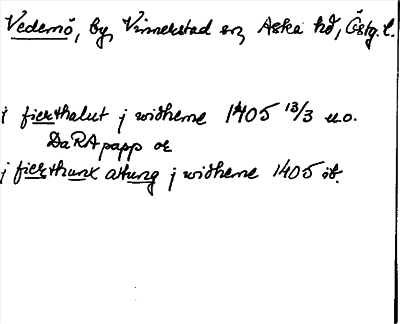 Vedemö, by, Vinnerstad sn, Aska hd, Östg. l.
j fierthalut j widherne 1405 13/3 u.o.
DaRA papp or
j fierthunx attung j widherne 1405 ib.